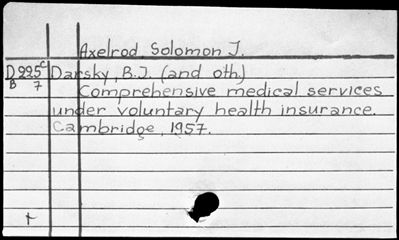 Axelrod, Solomon J.
D995c Darsky, B.J. (and oth.)
B 7 Comprehensive medical services
under voluntary health insurance.
Cambridge, 1957.
+